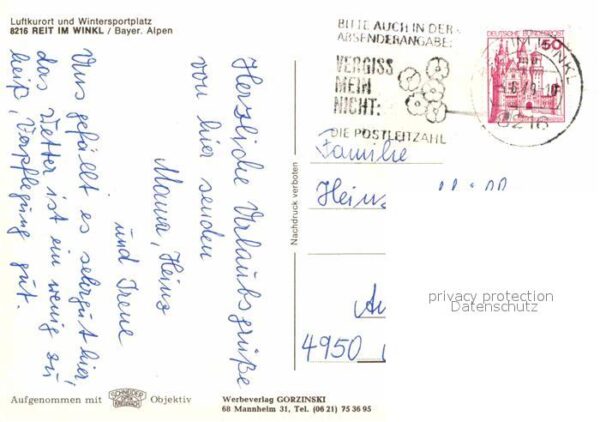 Luftkurort und Wintersportplatz
8216 REIT IM WINKL / Bayer. Alpen
Herzliche Urlaubsgrüße
von hier senden
Mama, Heinz
und Irene
Uns gefällt es sehr gut hier,
das Wetter ist ein wenig zu
heiß, Verpflegung gut.
BITTE AUCH IN DER
ABSENDERANGABE:
VERGISS
MEIN
NICHT:
DIE POSTLEITZAHL
DEUTSCHE BUNDESPOST
50
IM WINKL
8216
Nachdruck verboten
Familie
Heinz
4950
privacy protection
Datenschutz
Aufgenommen mit SCHNEIDER KREUZNACH Objektiv
Werbeverlag GORZINSKI
68 Mannheim 31, Tel. (06 21) 75 36 95